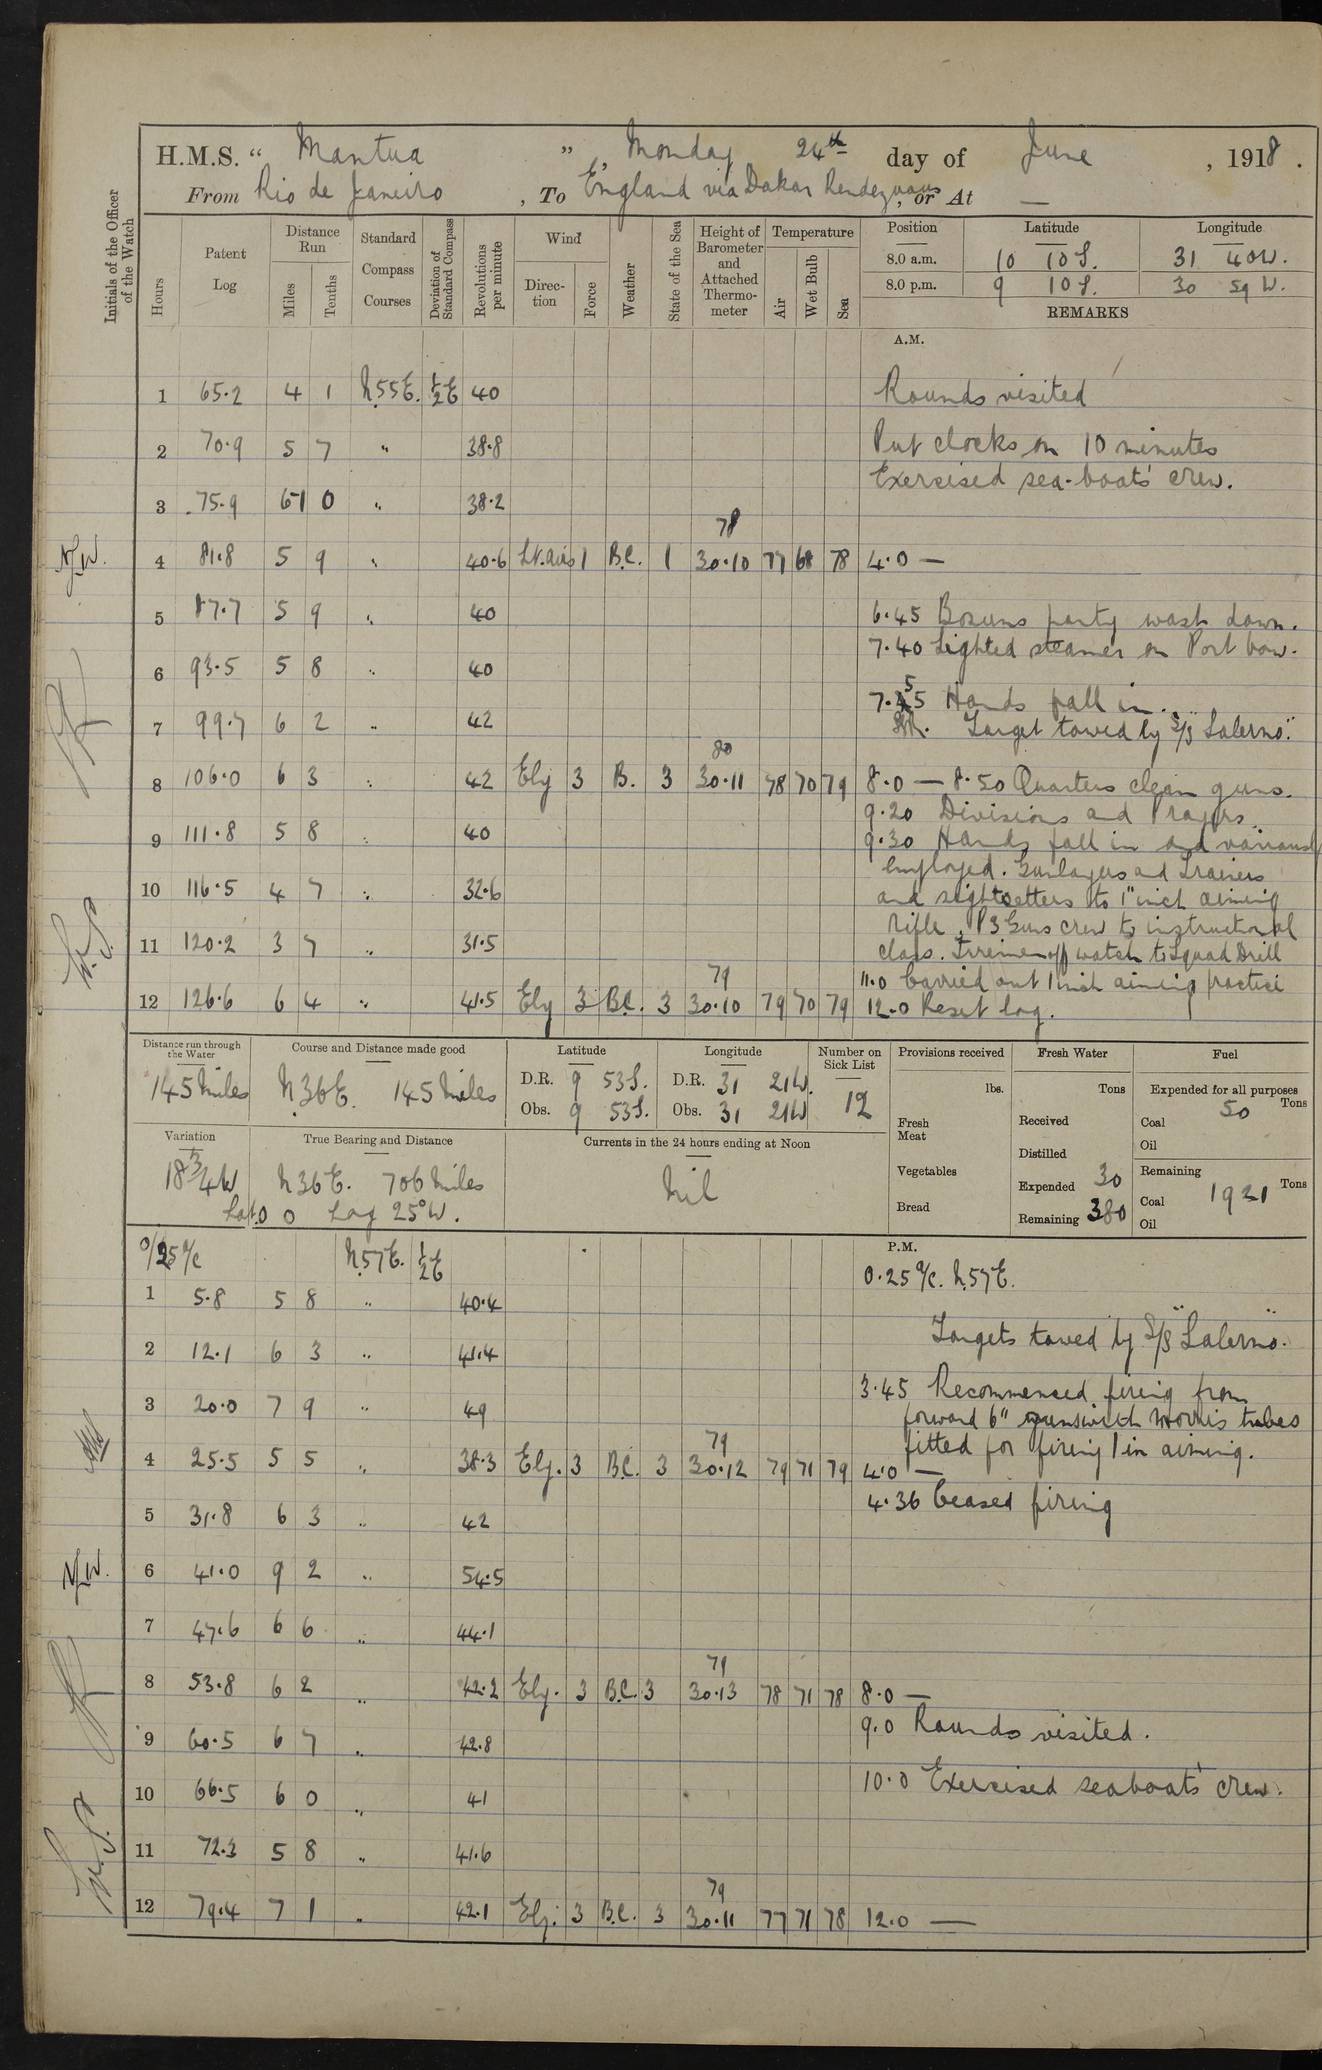 H.M.S. “ Mantua ”, Monday 24th day of June, 1918.
From Rio de Janeiro, To England via Dakar Rendezvous, or At —
Initials of the Officer of the Watch
Hours
Patent Log
Distance Run
Miles
Tenths
Standard Compass Courses
Deviation of Standard Compass
Revolutions per minute
Wind
Direction
Force
Weather
State of the Sea
Height of Barometer and Attached Thermometer
Temperature
Air
Wet Bulb
Sea
Position Latitude Longitude
8.0 a.m. 10 10 S. 31 40 W.
8.0 p.m. 9 10 S. 30 59 W.
REMARKS
A.M.
1 65.2 4 1 N.55E. ½E 40 Rounds visited
2 70.9 5 7 " 38.8 Put clocks on 10 minutes
Exercised sea-boats' crew.
3 75.9 0 " 38.2
78
4 81.8 5 9 " 40.6 Lt. airs 1 B.C. 1 30.10 77 68 78 4.0 —
5 87.7 5 9 " 40 6.45 Bosuns party wash down.
7.40 Sighted steamer on Port bow.
6 93.5 5 8 " 40
7.55 Hands fall in.
7 99.7 6 2 " 42 Target towed by S/S "Salerno".
80
8 106.0 6 3 " 42 Ely 3 B. 3 30.11 78 70 79 8.0 — 8.50 Quarters clean guns.
9.20 Divisions and Prayers.
9 111.8 5 8 " 40 9.30 Hands fall in and variously
employed. Gunlayers and Trainers
10 116.5 4 7 " 32.6 and sightsetters to 1" inch aiming
Rifle. P3 Guns crew to instructional
11 120.2 3 7 " 31.5 class. Firemen off watch to Squad Drill
79
11.0 Carried out 1 inch aiming practice
12 126.6 6 4 " 41.5 Ely 3 B.C. 3 30.10 79 70 79 12.0 Reset log.
Distance run through the Water
145 Miles
Course and Distance made good
N36E. 145 Miles
Latitude
D.R. 9 53 S.
Obs. 9 53 S.
Longitude
D.R. 31 21 W.
Obs. 31 21 W
Number on Sick List
12
Provisions received
lbs.
Fresh Meat
Vegetables
Bread
Fresh Water
Tons
Received
Distilled
Expended 30
Remaining 380
Fuel
Expended for all purposes
Tons
Coal 50
Oil
Remaining
Tons
Coal 1921
Oil
Variation
18¾W
True Bearing and Distance
N36E. 706 Miles
Lat. 0 0 Log 25°W.
Currents in the 24 hours ending at Noon
Nil
P.M.
0/25 a/c N.57E. ½E 0.25 a/c. N.57E.
1 5.8 5 8 " 40.4
Targets towed by S/S "Salerno".
2 12.1 6 3 " 41.4
3.45 Recommenced firing from
3 20.0 7 9 " 49 forward 6" guns with Morris tubes
79
fitted for firing 1 in aiming.
4 25.5 5 5 " 38.3 Ely. 3 B.C. 3 30.12 79 71 79 4.0 —
4.36 Ceased firing
5 31.8 6 3 " 42
6 41.0 9 2 " 54.5
7 47.6 6 6 " 44.1
79
8 53.8 6 2 " 42.2 Ely. 3 B.C. 3 30.13 78 71 78 8.0 —
9.0 Rounds visited.
9 60.5 6 7 " 42.8
10.0 Exercised seaboats' crew.
10 66.5 6 0 " 41
11 72.3 5 8 " 41.6
79
12 79.4 7 1 " 42.1 Ely. 3 B.C. 3 30.11 77 71 78 12.0 —